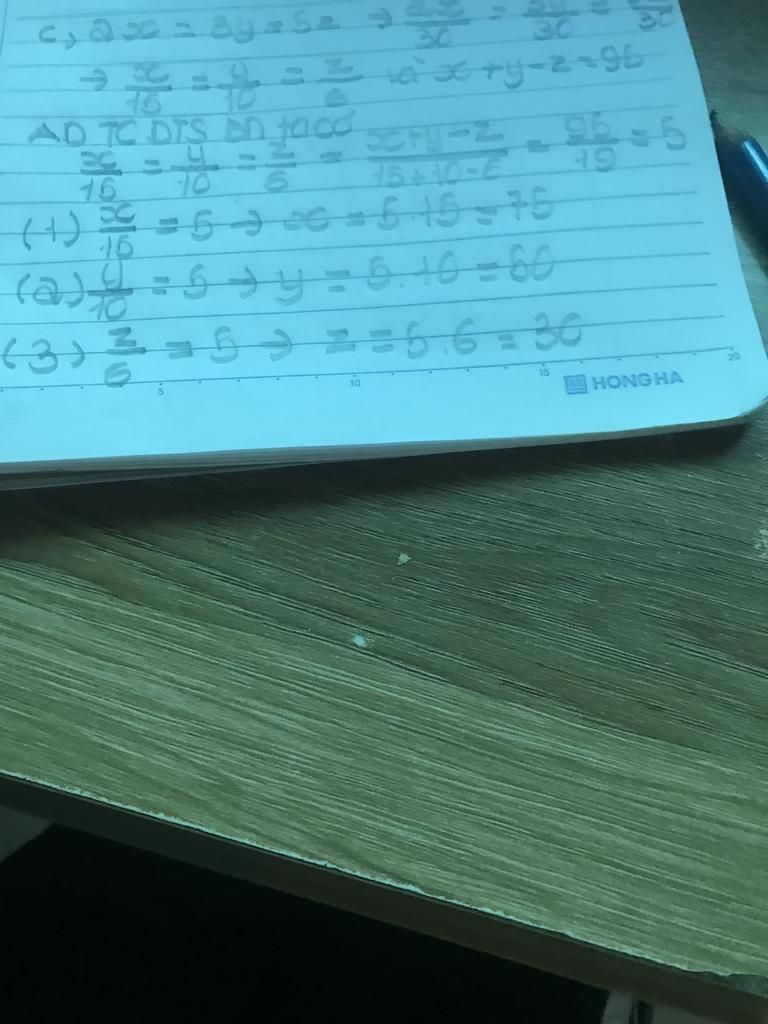 c, 2x = 3y = 5z → 2x/30 = 3y/30 = 5z/30
→ x/15 = y/10 = z/6 và x+y-z=95
AD TC DTS BN ta có
x/15 = y/10 = z/6 = x+y-z/15+10-6 = 95/19 = 5
(1) x/15 = 5 → x = 5.15 = 75
(2) y/10 = 5 → y = 5.10 = 50
(3) z/6 = 5 → z = 5.6 = 30
5 10 15 20
HONG HA